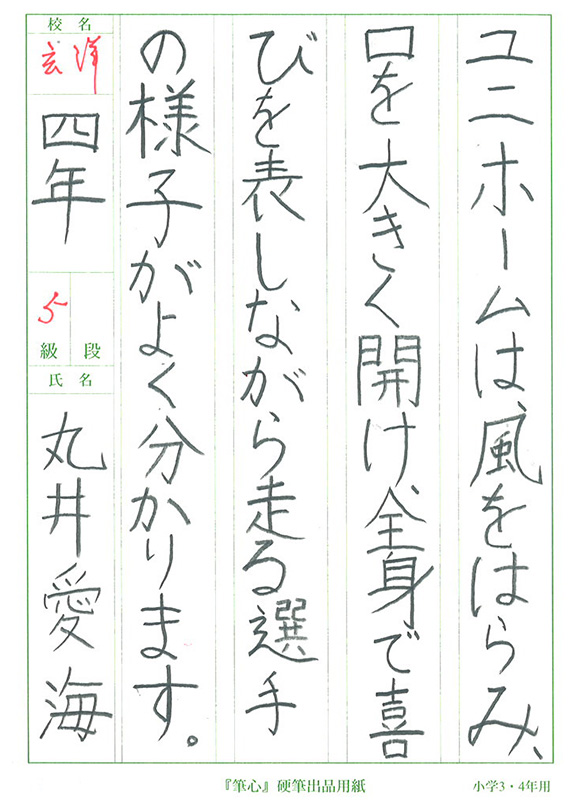 ユニホームは、風をはらみ、
口を大きく開け、全身で喜
びを表しながら走る選手
の様子がよく分かります。
校名
玄洋
四年
5
級段
氏名
丸井愛海
『筆心』硬筆出品用紙
小学3・4年用